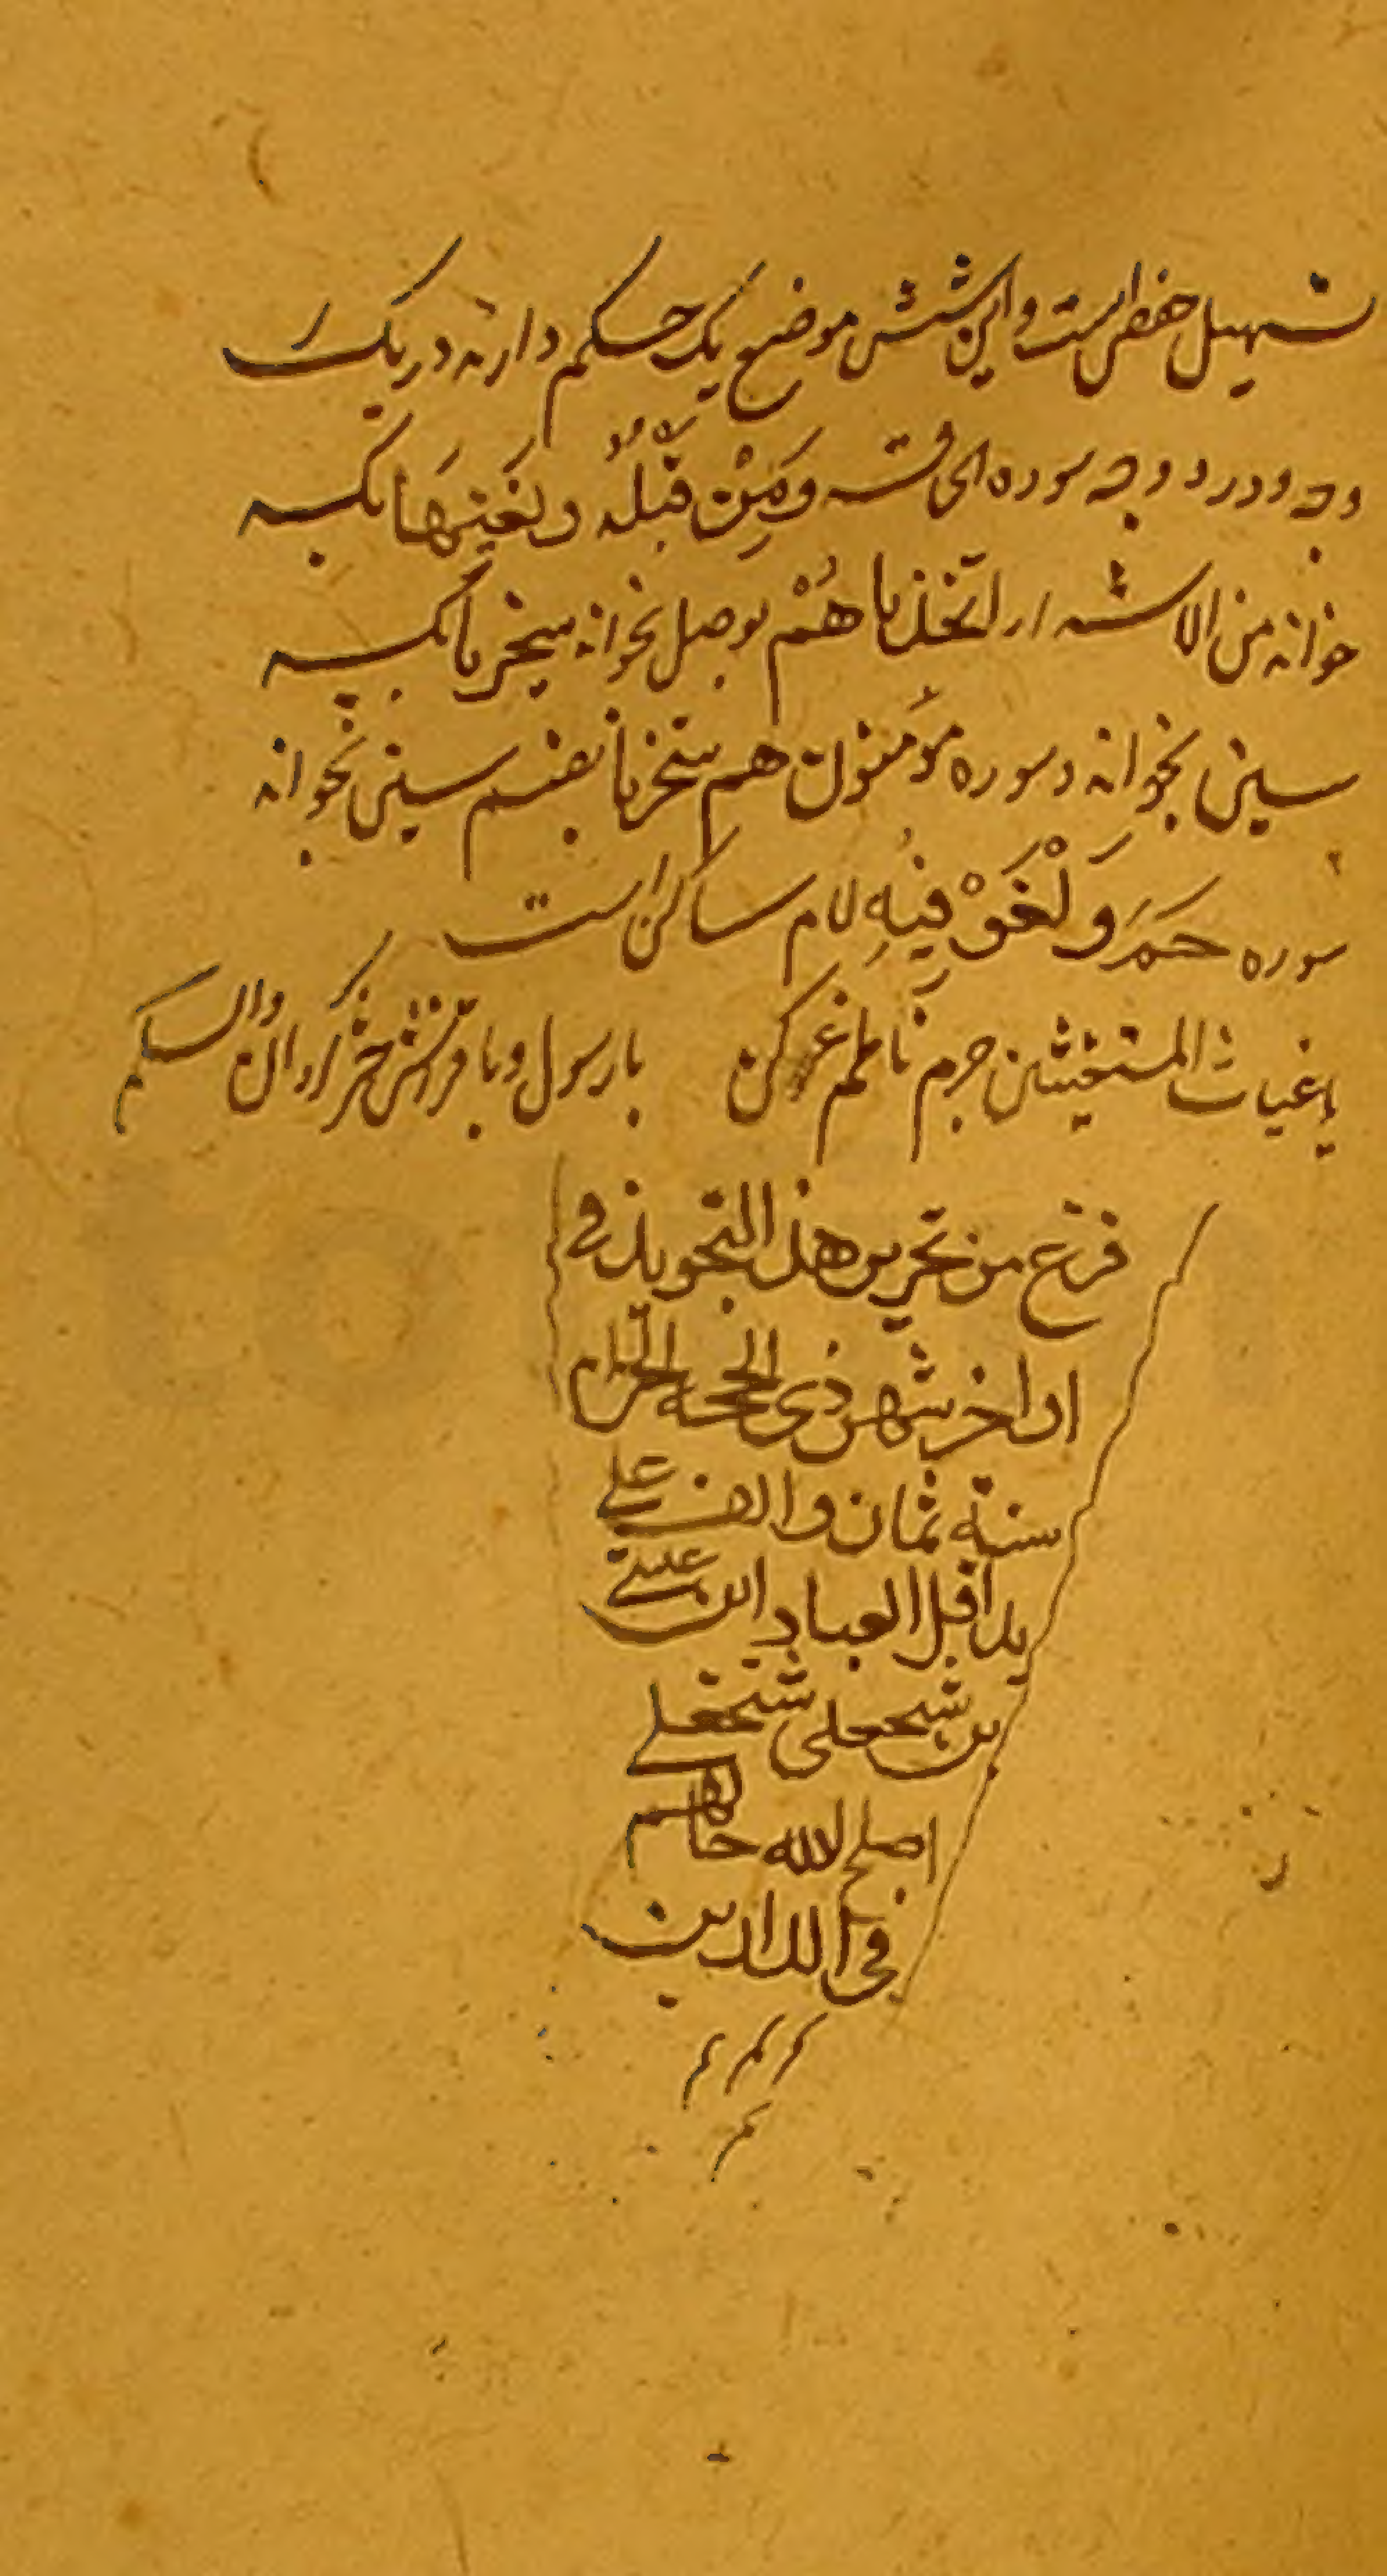 تسهیل حفص است و این شش موضع یک حکم دارند در یک
وجه و در دو وجه سوره الحاقه وَمَنْ قَبْلَهُ و تَعِیَهَا بکسر
خوانند من الاشرار اتخذنا هُمْ بوصل بخوانند سخریا بکسر
سین بخوانند در سوره مؤمنون هم سخریا بضم سین بخوانند
سوره حم وَلْغَوْ فِیهِ لام ساکن است
یا غیاث المستغیثین جرم ناظم عفو کن با رسول و با حشر گردان والسلم
فرغ من تحریر هذا التجوید فی
اواخر شهر ذی الحجه الحرام
سنة ثمان والف علی
ید اقل العباد ابن علی
بن شیخعلی شیخعلی
اصلح الله حالهم
فی الدارین